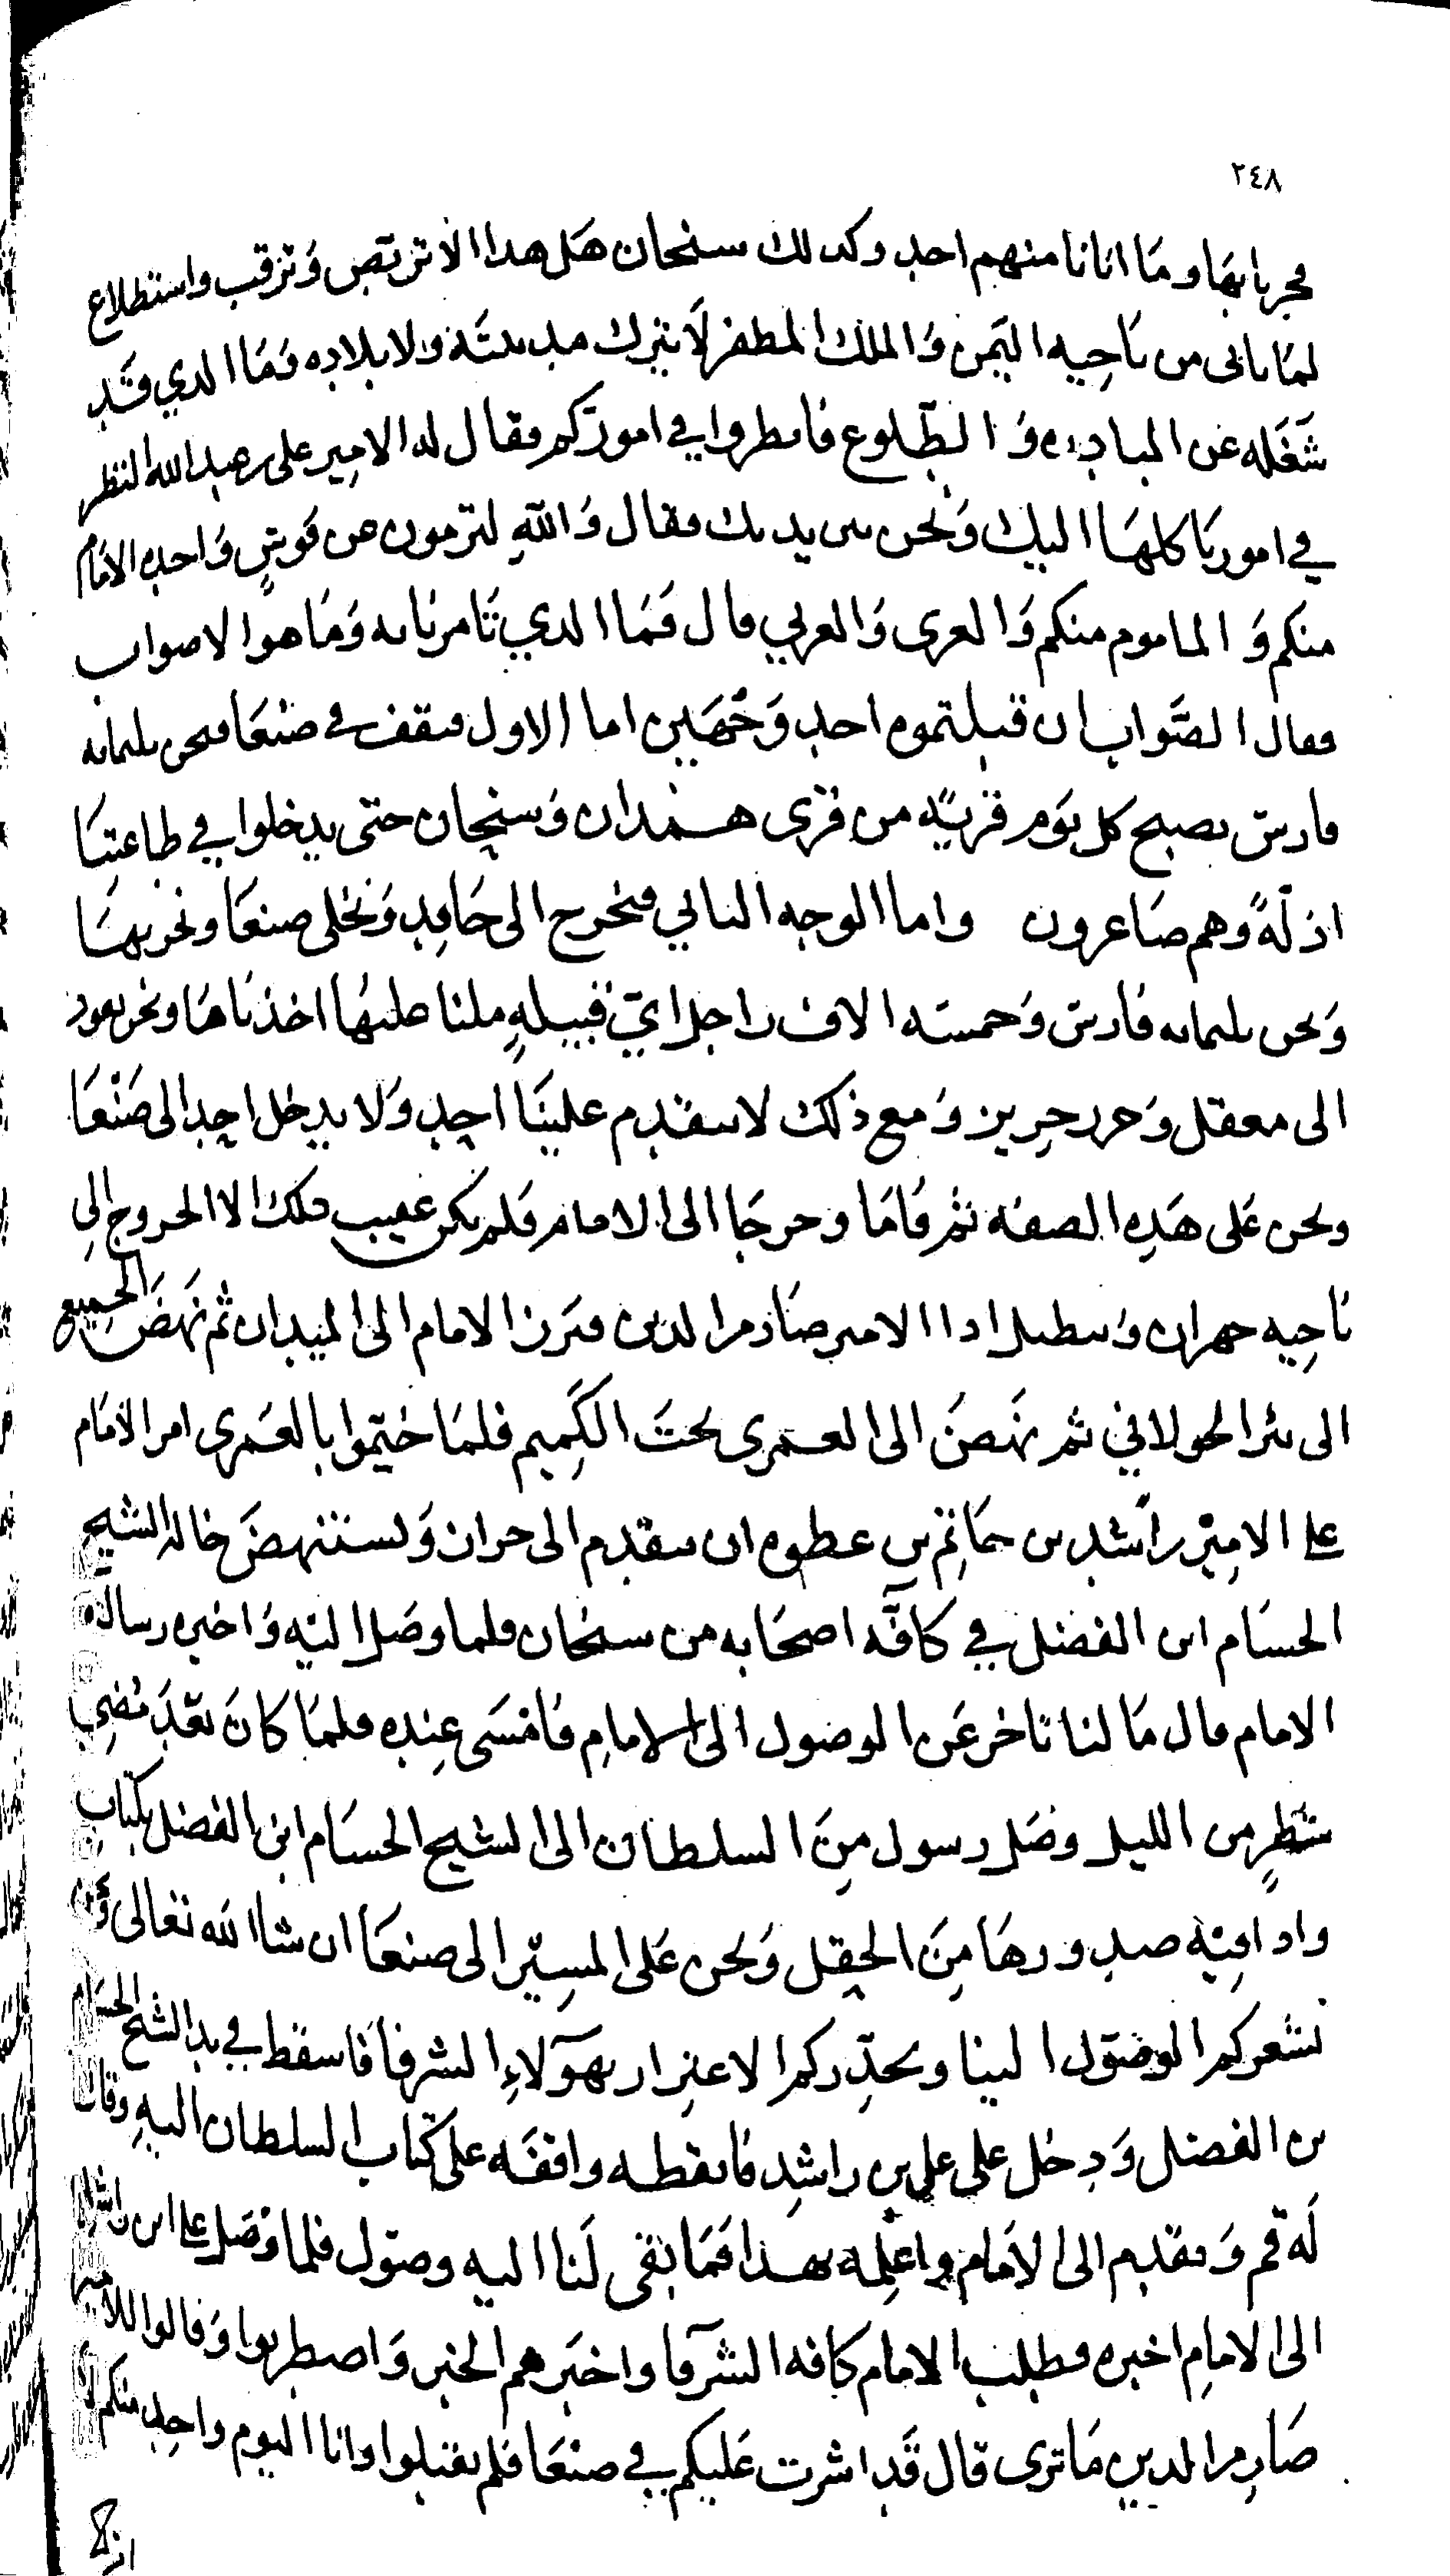 ٢٤٨
مجر بابها وما اتانا منهم احد وكدلك سنحان هل هدا الا تربّص وَترقب واستطلاع
لما ياتى من ناحيه اليمن وَالملك المظفر لا يترك مدينته ولا بلاده فما الدي قد
شغله عن المبادره وَالطّلوع فانطروا في اموركم فقال له الامير على بن عبد الله النظر
في امورنا كلها اليك وَنحن بين يديك فقال وَاللهِ لترمون عن قوسٍ وَاحده الامام
منكم وَالماموم منكم وَالغزى وَالعربي قال فما الدي تامرنا به وَما هو الاصواب
فقال الصّواب ان قبلتموه احد وَجهين اما الاول فنقف في صنعا فنحن بثلثمايه
فارس نصبح كل يوم قريه من قرى همدان وَسنحان حتى يدخلوا في طاعتنا
اذلّةً وهم صاغرون واما الوجه الثاني فنخرج الى حافد وَنخلى صنعا ونخربها
وَنحن بثلثمايه فارس وَخمسه الاف راجل ايّ قبيلهٍ ملنا عليها اخذناها ونحن نعود
الى معقل وَحرز حريز وَمع ذلك لا يتقدم علينا احد وَلا يدخل احد الى صنعا
ونحن على هده الصفه ثم قاما وخرجا الى الامام فلم يكن عقيب ذلك الا الخروج الى
ناحيه حهران الامير صارم الدين فبرز الامام الى الميدان ثم نهض الجميع
الى بئر الخولاني ثم نهض الى العمرى تحت الكميم فلما خيّموا بالعمرى امر الامام
على الامير راشد بن حاتم بن عطوه ان يتقدم الى حران وَيستنهض خاله الشيخ
الحسام ابن الفضل في كافّه اصحابه من سنحان فلما وصل اليه وَاخبره رساله
الامام قال ما لنا تاخر عن الوصول الى الامامِ فامسى عنده فلما كان بعد مُضي
شطرٍ من الليل وصل رسول من السلطان الى الشيخ الحسام ابن الفضل بكتاب
واد افيه صدورها من الحقل وَنحن على المسير الى صنعا ان شا الله تعالى
نشعركم الوصول الينا ونحدّركم الاغترار بهوَلاءِ الشرفا فاسقط في يد الشيخ الحسام
بن الفضل وَدخل على علي بن راشد فايقظه واقفه على كتاب السلطان اليه وقال
له قم وَتقدم الى الامام واعلمه بهدا فما بقى لنا اليه وصول فلما وصل على ابن راشد
الى الامامِ اخبره فطلب الامام كافه الشرفا واخبرهم الخبر وَاضطربوا وَقالوا للامير
صارم الدين ما ترى قال قد اشرت عليكم في صنعا فلم تقبلوا وانا اليوم واحد منكم